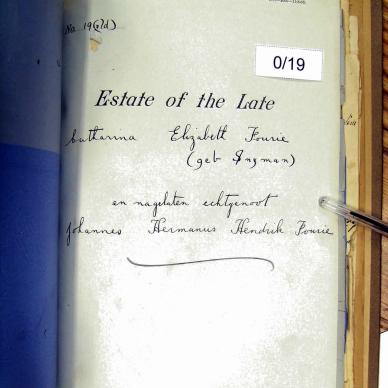 No. 19(old)
0/19
Estate of the Late
Catharina Elizabeth Fourie
(geb Ingman)
en nagelaten echtgenoot
Johannes Hermanus Hendrik Fourie